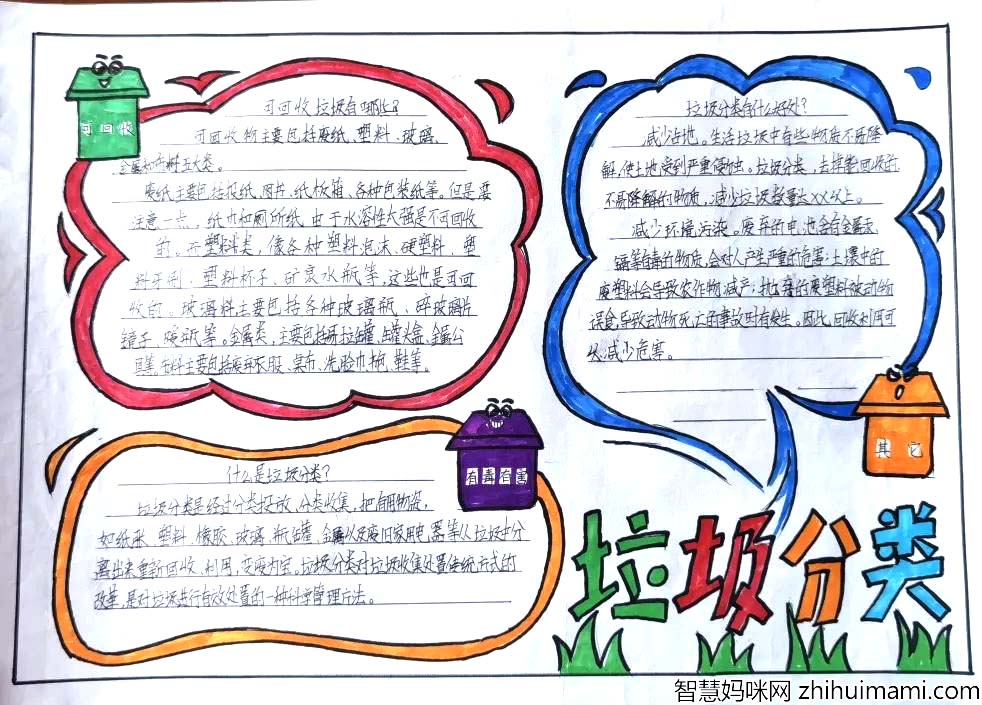 可回收
可回收垃圾有哪些?
可回收物主要包括废纸、塑料、玻璃、
金属和布料五大类。
废纸:主要包括报纸、图书、纸板箱、各种包装纸等。但是要
注意一点,纸巾和厕所纸由于水溶性太强是不可回收
的。而塑料类,像各种塑料泡沫、硬塑料、塑
料牙刷、塑料杯子、矿泉水瓶等,这些也是可回
收的。玻璃料主要包括各种玻璃瓶、碎玻璃片
镜子、暖瓶等。金属类,主要包括易拉罐、罐头盒、金属公
具等,布料主要包括废弃衣服、桌布、洗脸巾、鞋等。
垃圾分类有什么好处?
减少占地。生活垃圾中有些物质不易降
解,使土地受到严重侵蚀。垃圾分类,去掉能回收的、
不易降解的物质,减少垃圾数量达XX以上。
减少环境污染。废弃的电池含有金属汞、
镉等有毒的物质,会对人产生严重的危害;土壤中的
废塑料会导致农作物减产;抛弃的废塑料被动物
误食,导致动物死亡的事故时有发生。因此,回收利用可
以减少危害。
其它
有毒有害
什么是垃圾分类?
垃圾分类是经过分类投放、分类收集,把有用物资,
如纸张、塑料、橡胶、玻璃、瓶罐、金属以及废旧家用电器等从垃圾中分
离出来重新回收、利用,变废为宝。垃圾分类对垃圾收集处置传统方式的
改革,是对垃圾进行有效处置的一种科学管理方法。
垃圾分类
智慧妈咪网 zhihuimami.com